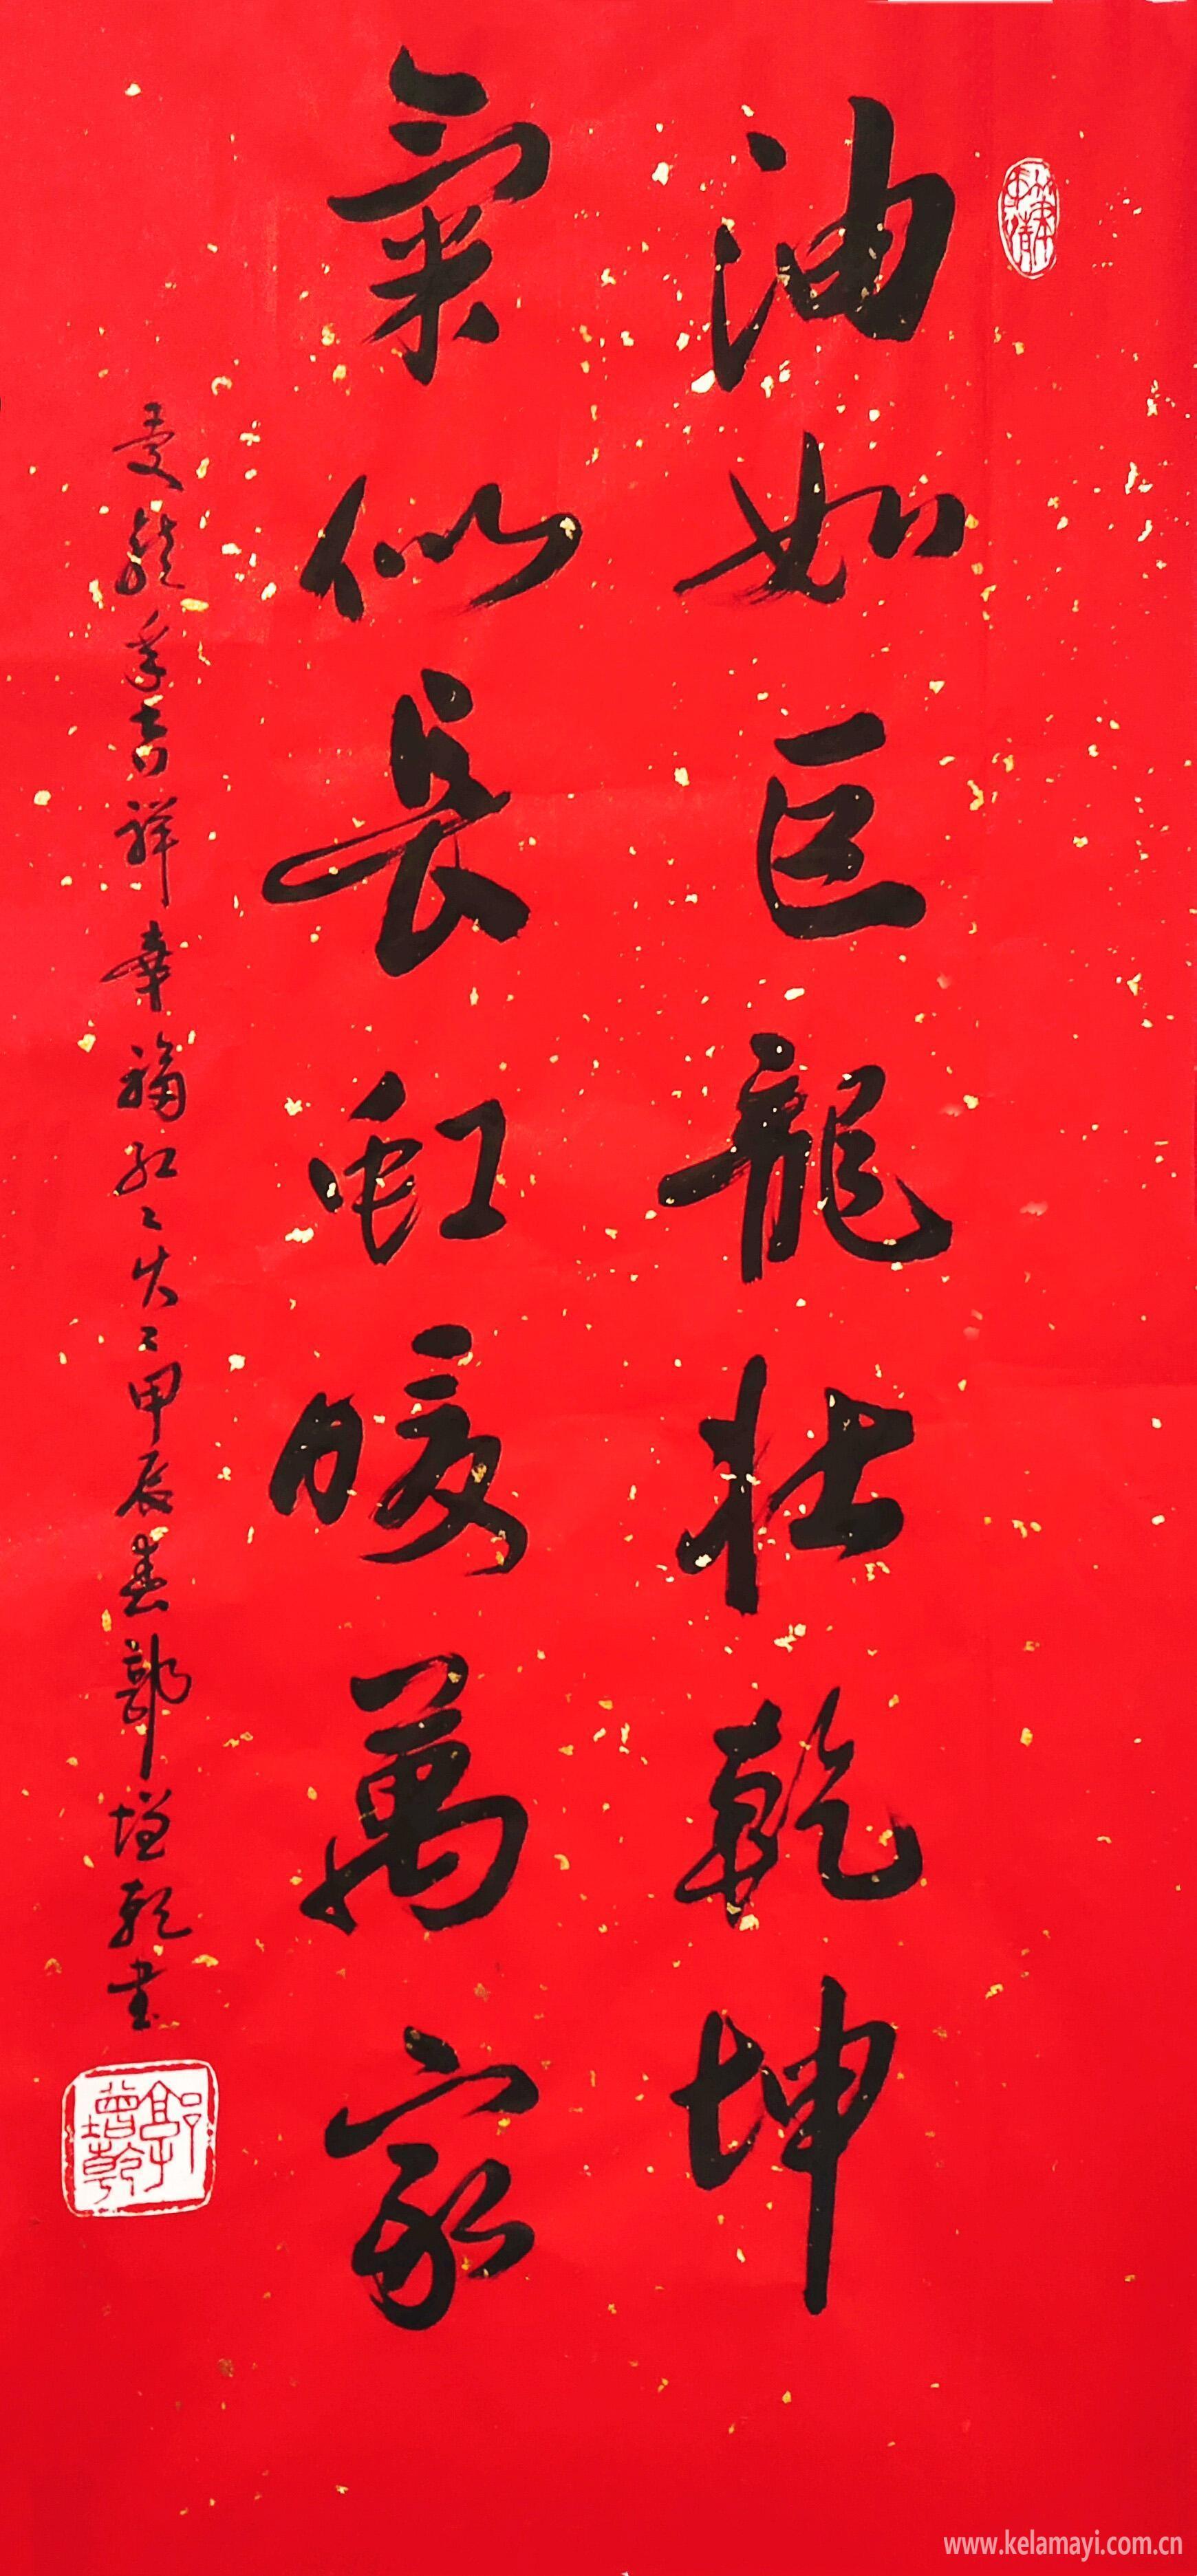 油如巨龍壯乾坤
氣似長虹暖萬家
龍年吉祥幸福紅〻火〻甲辰春郭增乾書
郭增乾
www.kelamayi.com.cn